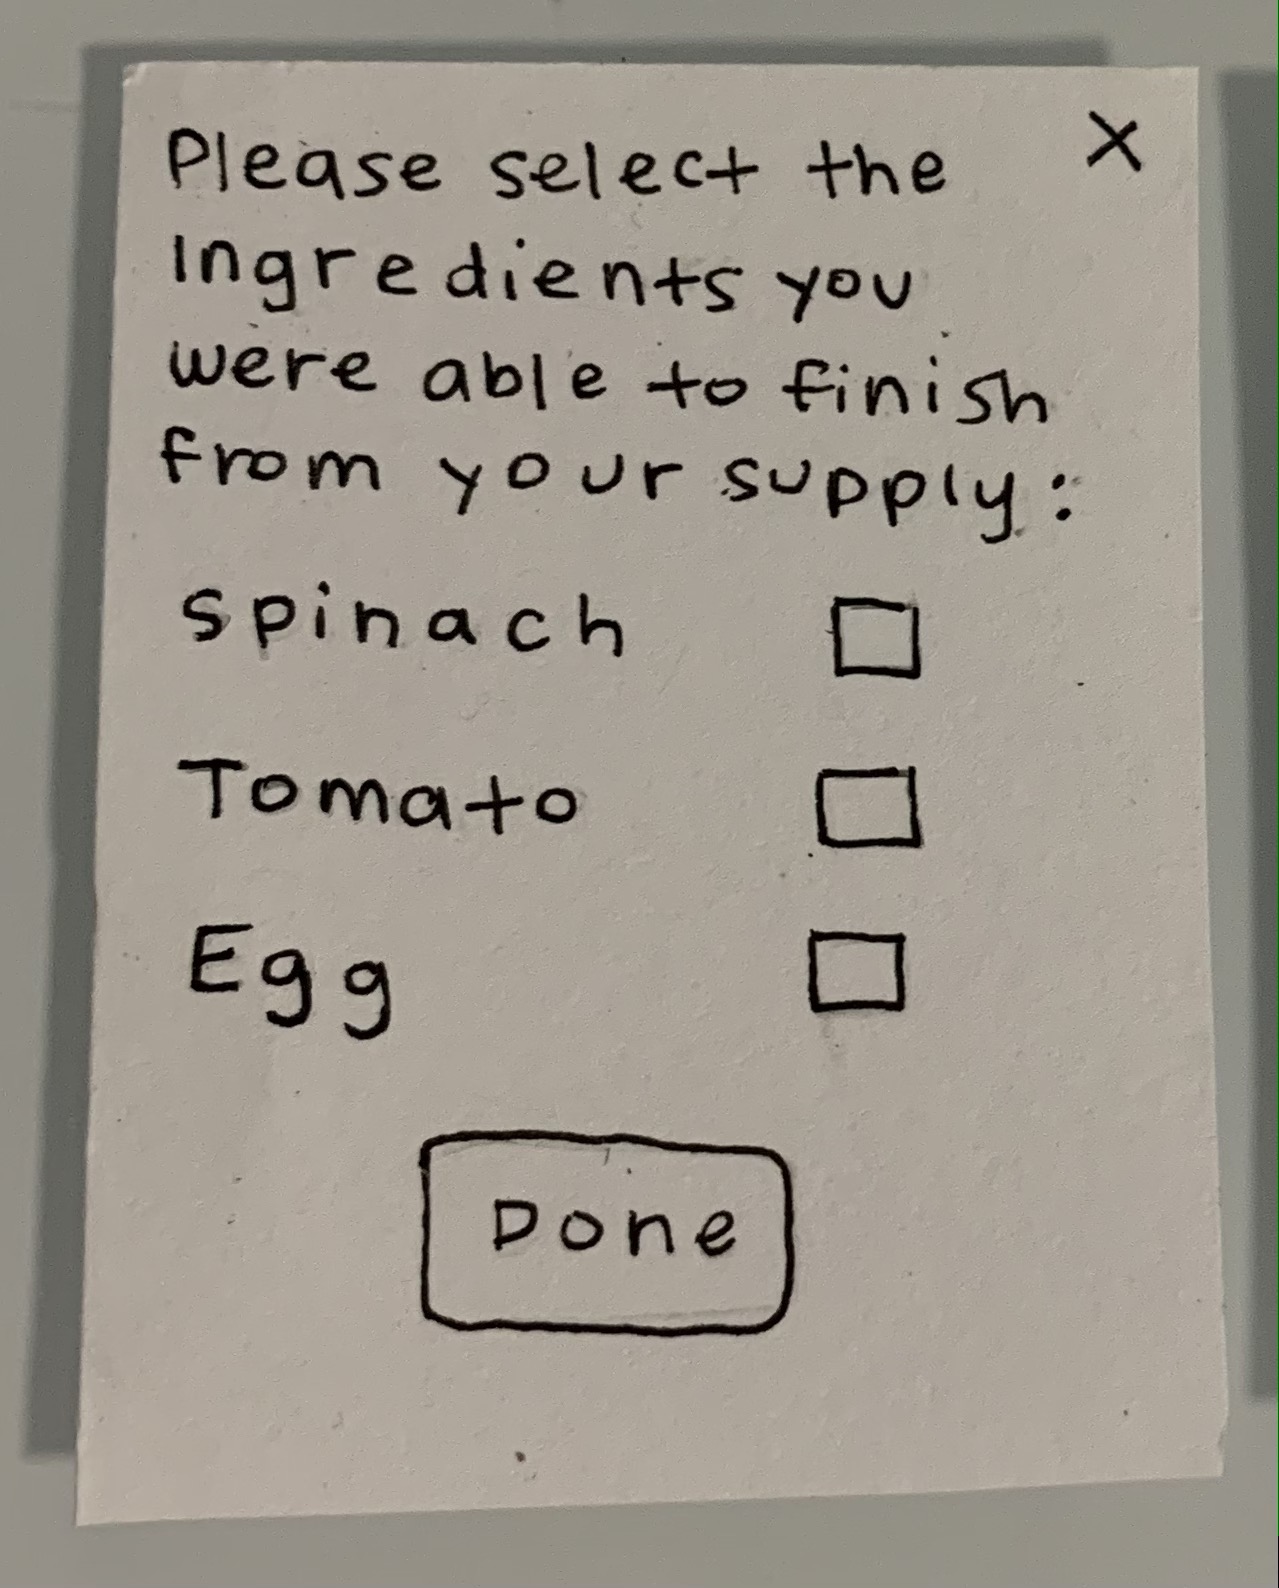 Please select the X
Ingredients you
were able to finish
from your supply:
Spinach
Tomato
Egg
Done